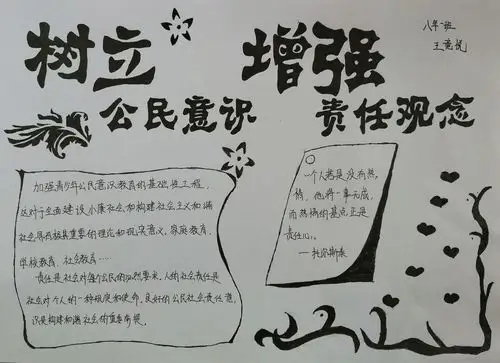 树立 增强
公民意识 责任观念
八年一班
王意悦
加强青少年公民意识教育的基础性工程,
这对于全面建设小康社会和构建社会主义和谐
社会具有极其重要的理论和现实意义。家庭教育、
学校教育、社会教育……
责任是社会对每个公民的必然要求,人的社会责任是
社会对个人的一种规定和使命,良好的公民社会责任意
识是构建和谐社会的重要前提。
一个人若是没有热
情,他将一事无成,
而热情的基点正是
责任心。
—托尔斯泰